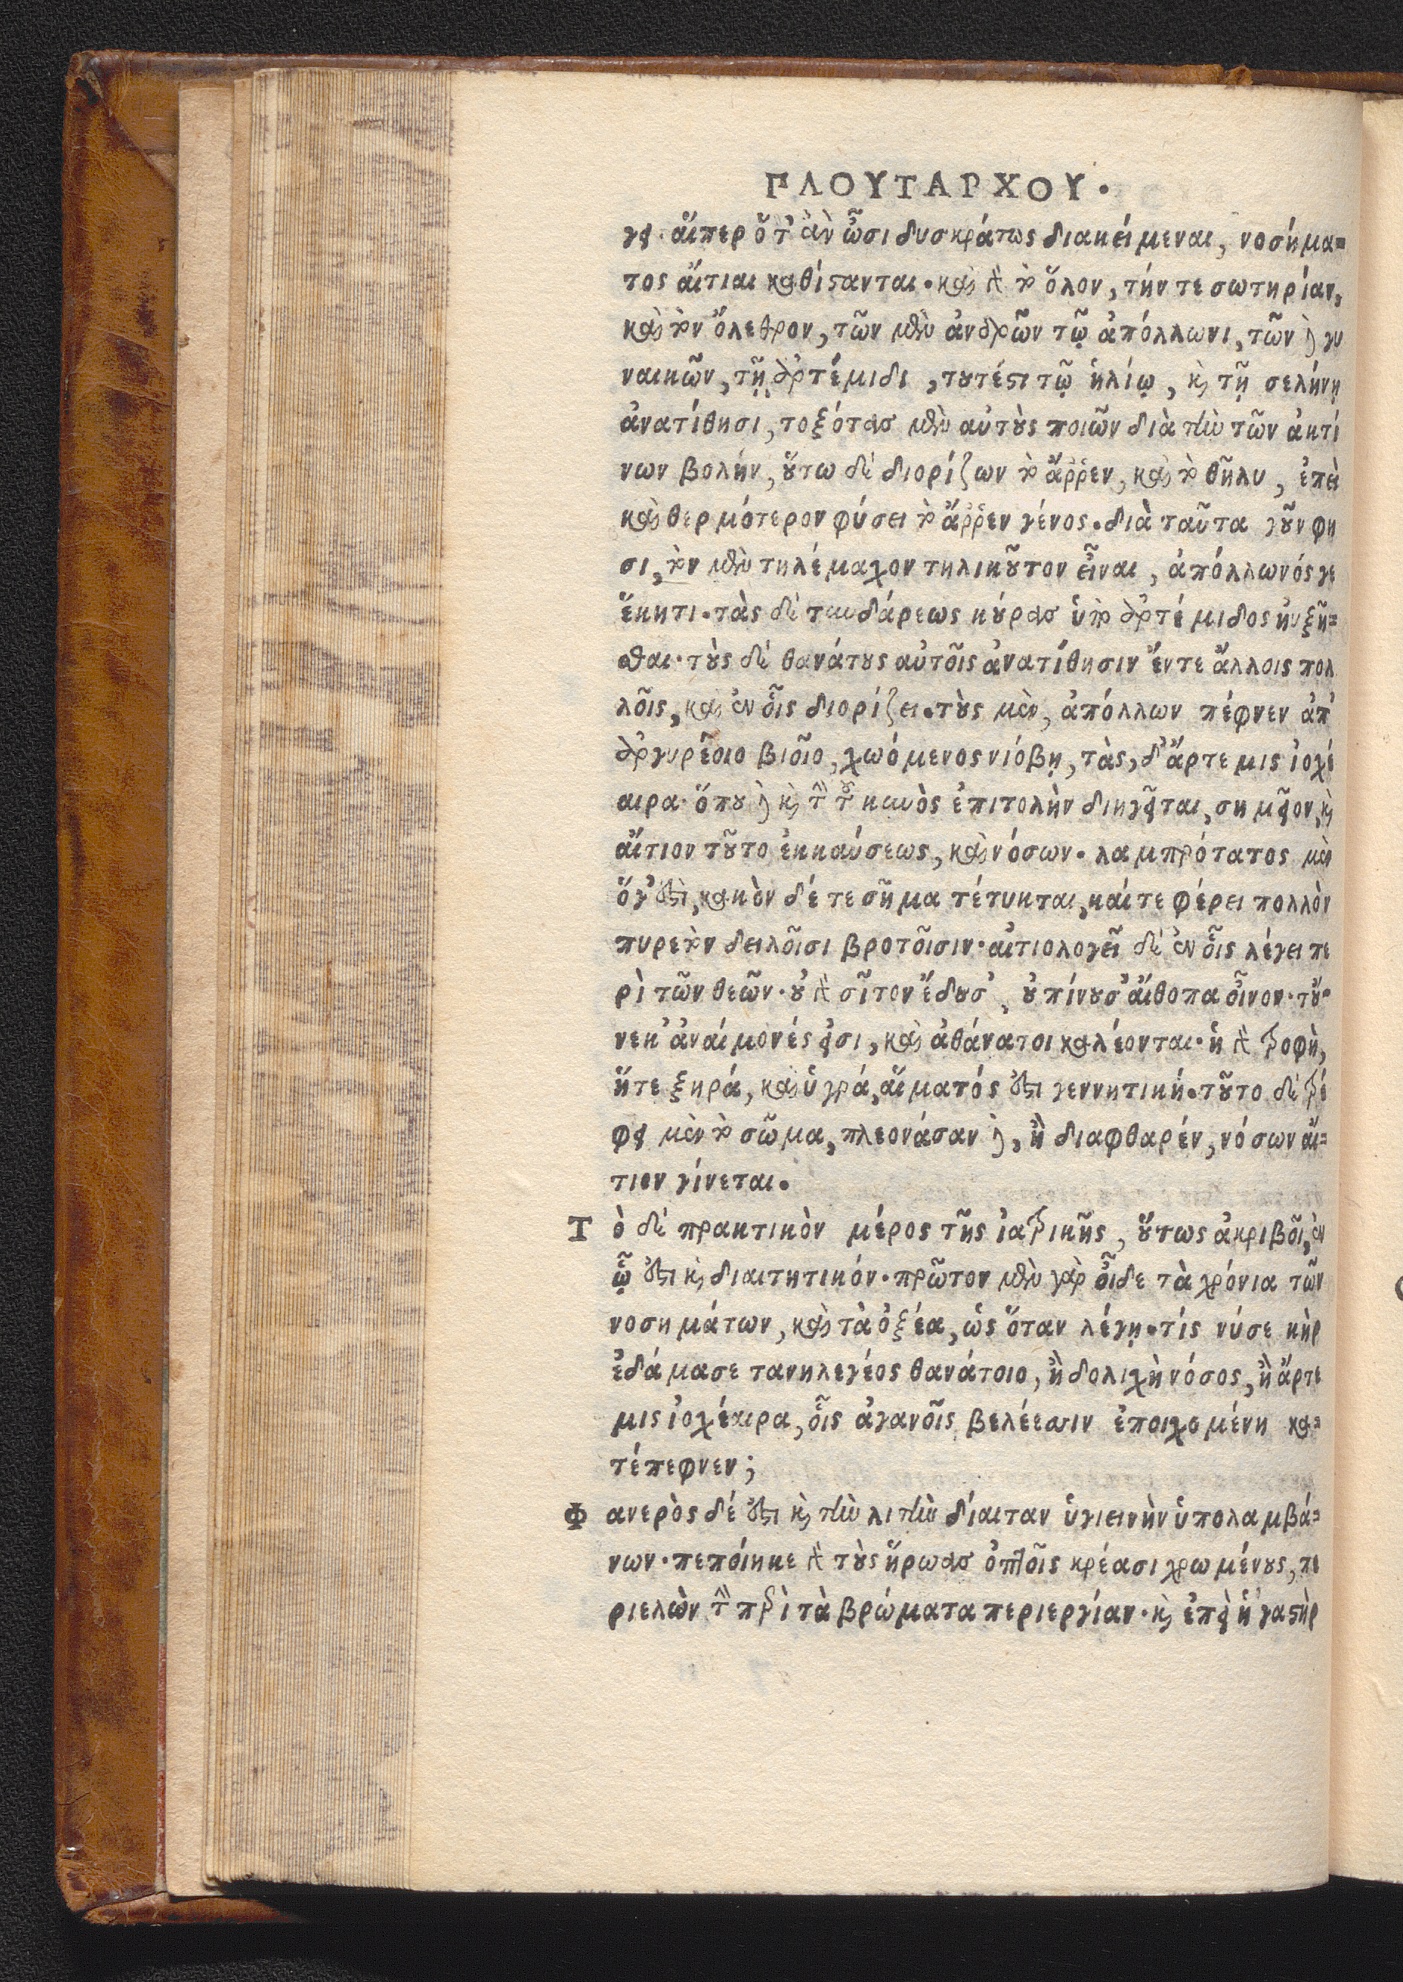 ΠΛΟΥΤΑΡΧΟΥ.
γει· αἵπερ ὅτ' ἂν ὦσι δυσκράτως διακείμεναι, νοσήμα=
τος αἴτιαι καθίστανται. καὶ γὰρ τὸ ὅλον, τήν τε σωτηρίαν,
καὶ τὸν ὄλεθρον, τῶν μὲν ἀνδρῶν τῷ ἀπόλλωνι, τῶν δὲ γυ
ναικῶν, τῇ ἀρτέμιδι, τουτέστι τῷ ἡλίῳ, καὶ τῇ σελήνῃ
ἀνατίθησι, τοξότας μὲν αὐτοὺς ποιῶν διὰ τὴν τῶν ἀκτί
νων βολήν, οὕτω δὲ διορίζων τὸ ἄῤῥεν, καὶ τὸ θῆλυ, ἐπεὶ
καὶ θερμότερον φύσει τὸ ἄῤῥεν γένος. διὰ ταῦτα γοῦν φη
σι, τὸν μὲν τηλέμαχον τηλικοῦτον εἶναι, ἀπόλλωνός γε
ἕκητι. τὰς δὲ τυνδάρεως κούρας ὑπὸ ἀρτέμιδος ηὐξῆ=
σθαι· τοὺς δὲ θανάτους αὐτοῖς ἀνατίθησιν ἔν τε ἄλλοις πολ
λοῖς, καὶ ἐν οἷς διορίζει. τοὺς μὲν, ἀπόλλων πέφνεν ἀπ'
ἀργυρέοιο βιοῖο, χωόμενος νιόβῃ, τὰς, δ' ἄρτεμις ἰοχέ
αιρα· ὅπου δὲ καὶ τὴν τοῦ κυνὸς ἐπιτολὴν διηγεῖται, σημεῖον, καὶ
αἴτιον τοῦτο ἐκκαύσεως, καὶ νόσων. λαμπρότατος μὲν
ὅγ' ἐστὶ, κακὸν δέ τε σῆμα τέτυκται, καί τε φέρει πολλὸν
πυρετὸν δειλοῖσι βροτοῖσιν· αἰτιολογεῖ δὲ ἐν οἷς λέγει πε
ρὶ τῶν θεῶν· οὐ γὰρ σῖτον ἔδουσ', οὐ πίνουσ' αἴθοπα οἶνον· τοὔ=
νεκ' ἀναίμονές εἰσι, καὶ ἀθάνατοι καλέονται· ἡ γὰρ τροφὴ,
ἥτε ξηρά, καὶ ὑγρά, αἵματός ἐστι γεννητική. τοῦτο δὲ τρέ
φει μὲν τὸ σῶμα, πλεονάσαν δὲ, ἢ διαφθαρέν, νόσων αἴ=
τιον γίνεται.
Τὸ δὲ πρακτικὸν μέρος τῆς ἰατρικῆς, οὕτως ἀκριβοῖ, ἐν
ᾧ ἐστι καὶ διαιτητικόν. πρῶτον μὲν γὰρ οἶδε τὰ χρόνια τῶν
νοσημάτων, καὶ τὰ ὀξέα, ὡς ὅταν λέγῃ. τίς νύ σε κὴρ
ἐδάμασε τανηλεγέος θανάτοιο, ἢ δολιχὴ νόσος, ἢ ἄρτε
μις ἰοχέαιρα, οἷς ἀγανοῖς βελέεσσιν ἐποιχομένη κα=
τέπεφνεν;
Φανερὸς δέ ἐστι καὶ τὴν λιτὴν δίαιταν ὑγιεινὴν ὑπολαμβά=
νων. πεποίηκε γὰρ τοὺς ἥρωας ὀπτοῖς κρέασι χρωμένους, πε
ριελὼν τὴν περὶ τὰ βρώματα περιεργίαν. καὶ ἐπεὶ ἡ γαστὴρ